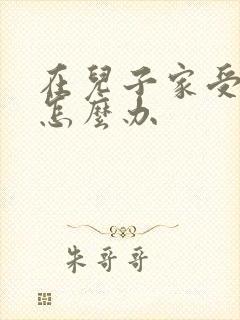 在兒子家受
怎麼办
朱哥哥